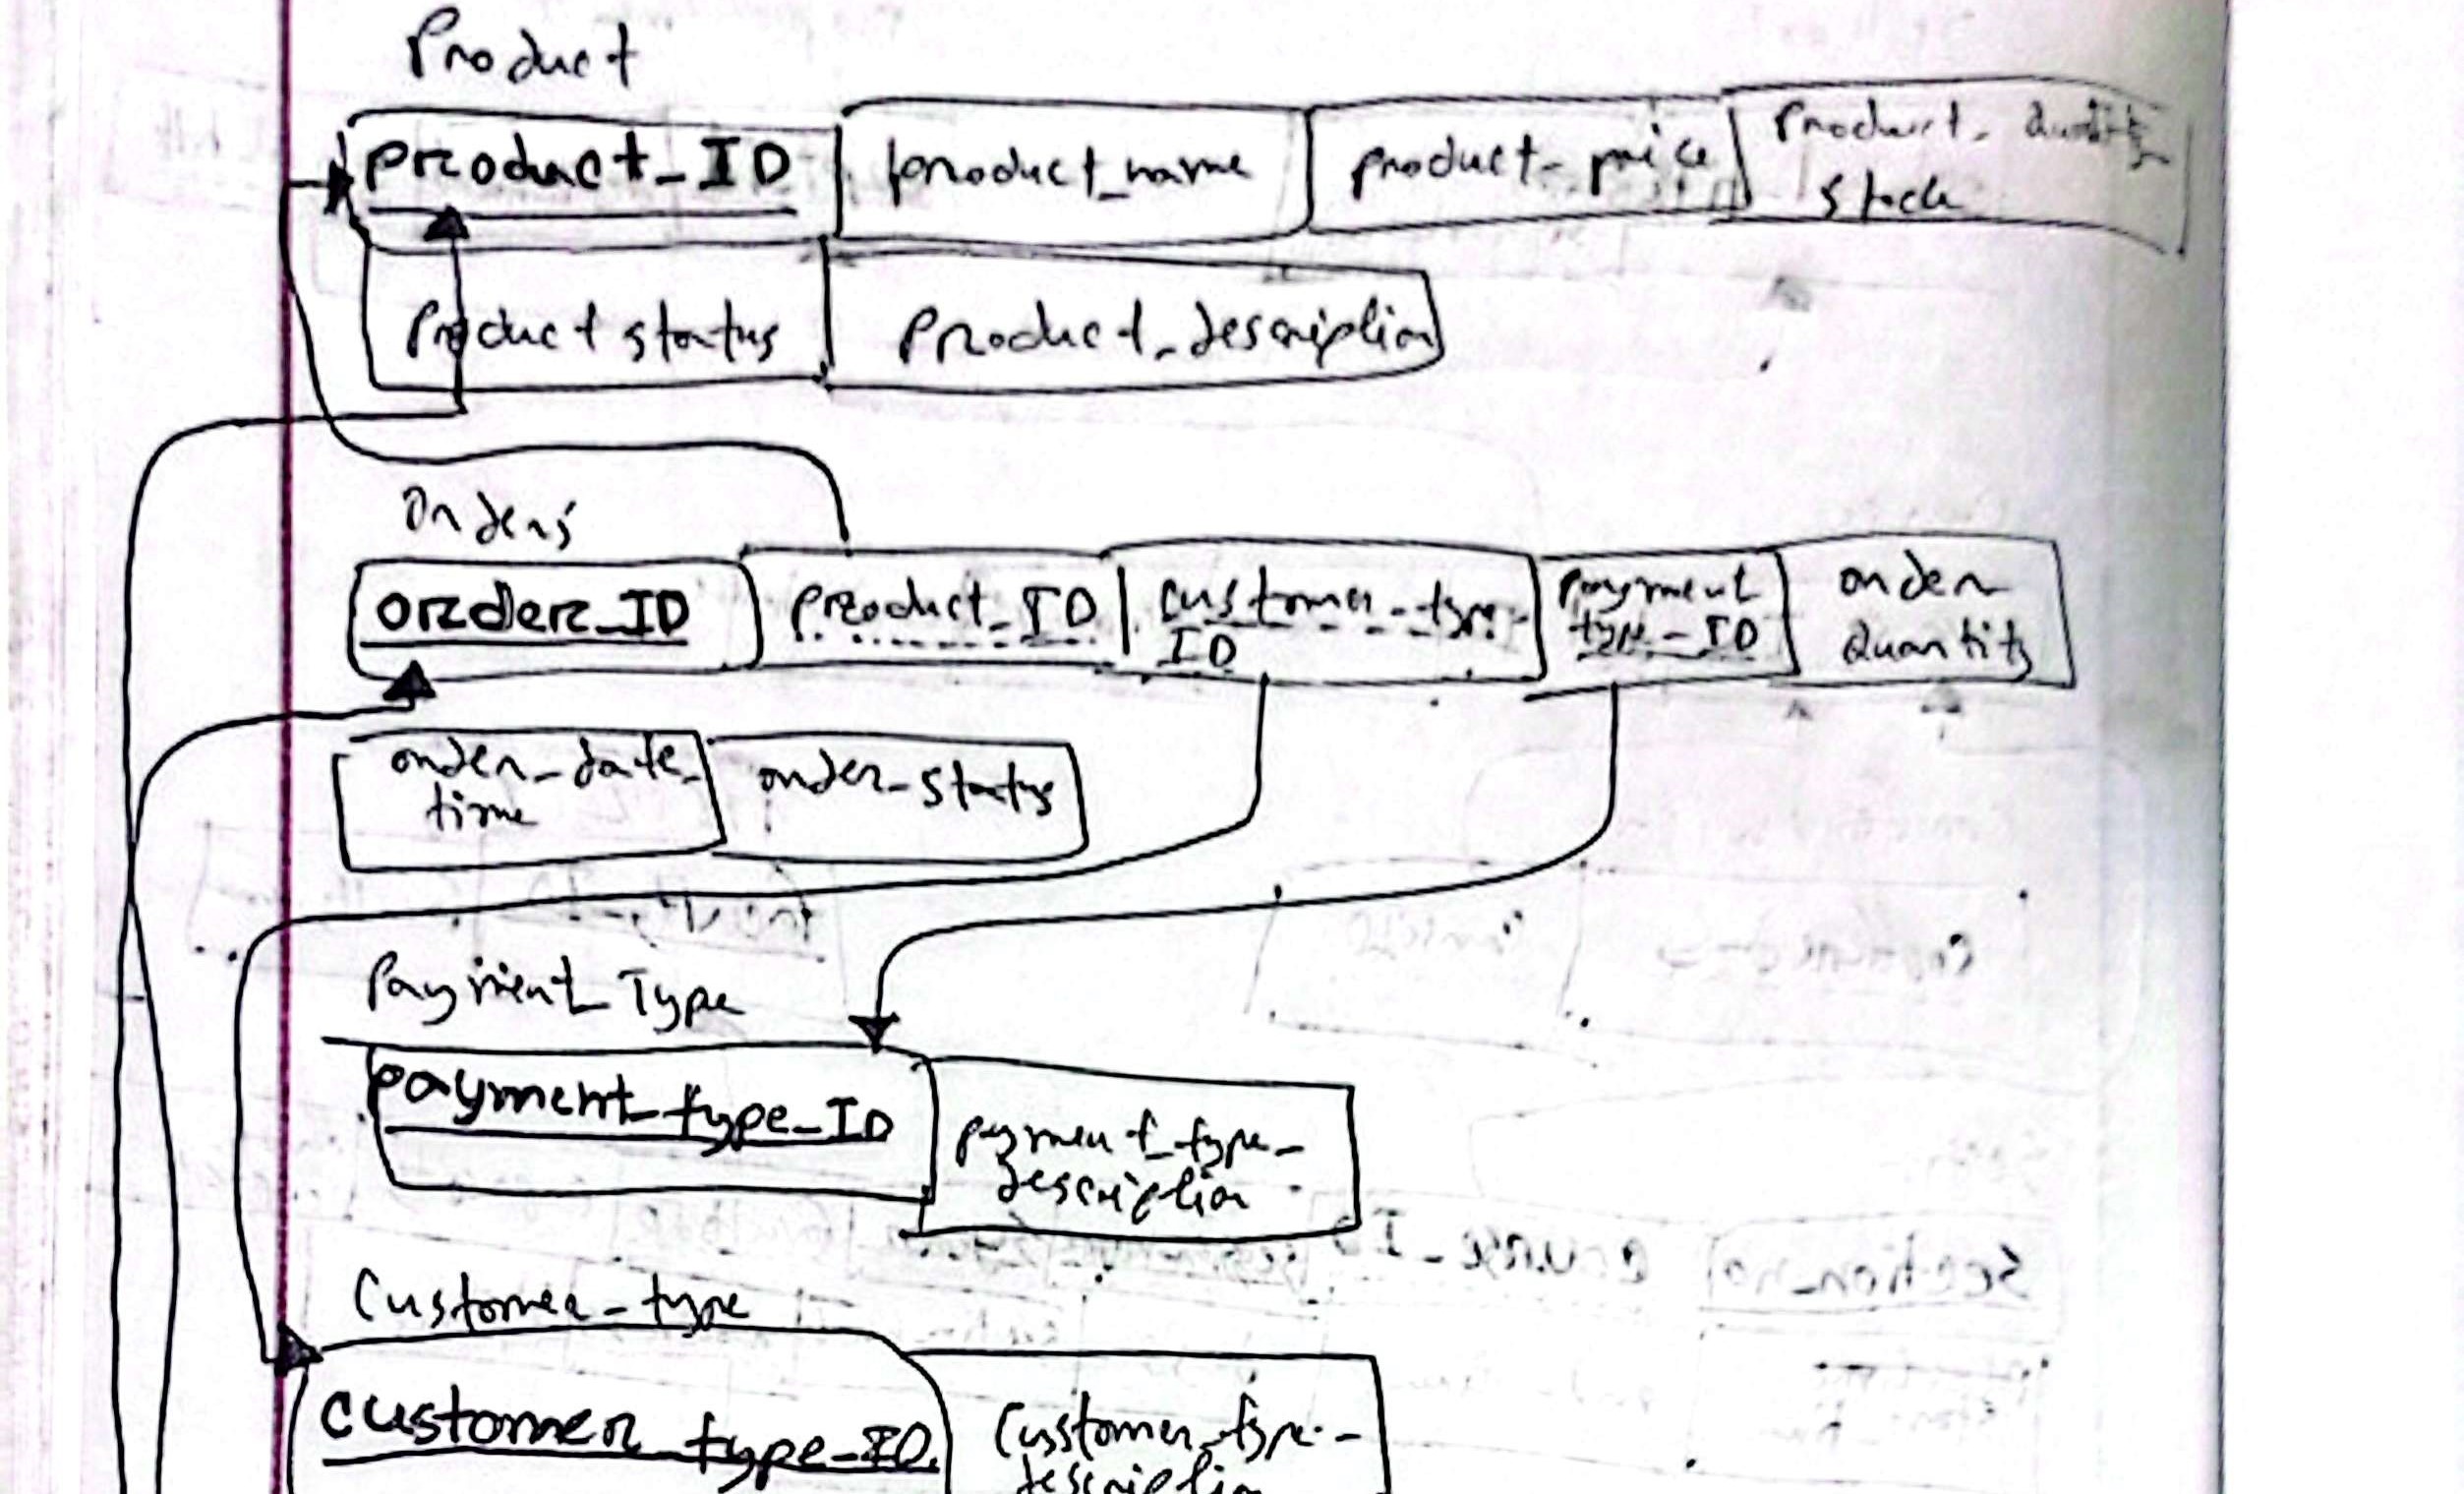 Product
product_ID product_name product-price product-Quantity
stock
Product status product_description
Orders
order_ID product_ID customer-type- payment order
ID type-ID Quantity
order-date- order-status
time
Payment_Type
payment_type_ID payment_type-
description
Customer-type
customer_type-ID Customer-type-
description